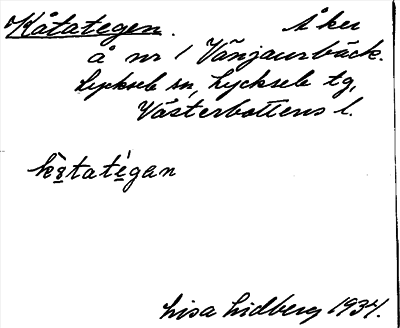 Kåtategen. Åker
å nr 1 Vänjaurbäck.
Lycksele sn, Lycksele tg,
Västerbottens l.
kò̱tatég̱an
Lisa Lidberg 1934.